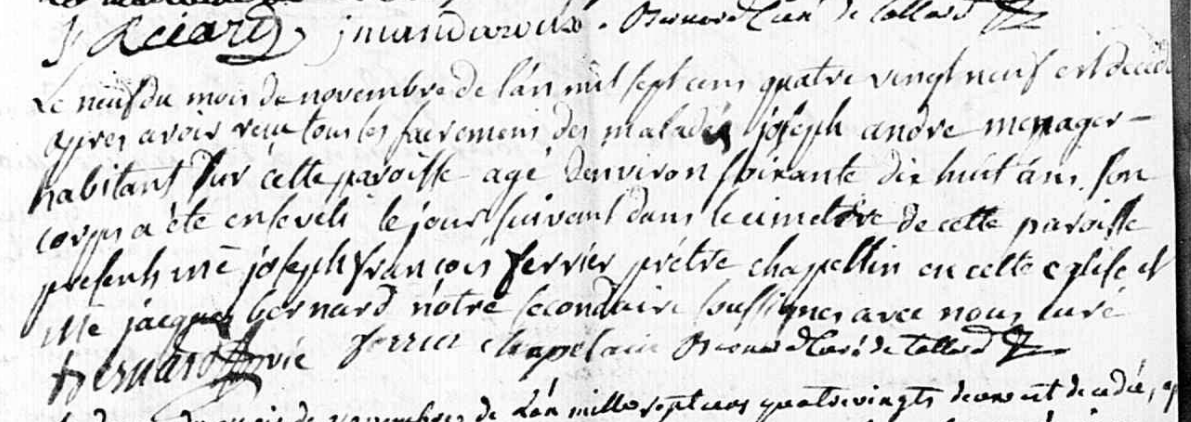 Le neuf du mois de novembre de l'an mil sept cens quatre vingt neuf est décédé
apres avoir reçu tous les sacremens des malades joseph andre menager -
habitant sur cette paroisse agé d'environ soixante dix huit ans son
corps a été enseveli le jour suivant dans le cimetiere de cette paroisse
presents me joseph françois ferrier prétre chapellin en cette eglise et
Me jacques bernard nôtre secondaire soussignes avec nous curé
Bernard vic ferrier chapelain Bernard Curé de Tallard
de novembre de L'an mille sept cens quatrevingts decedée,